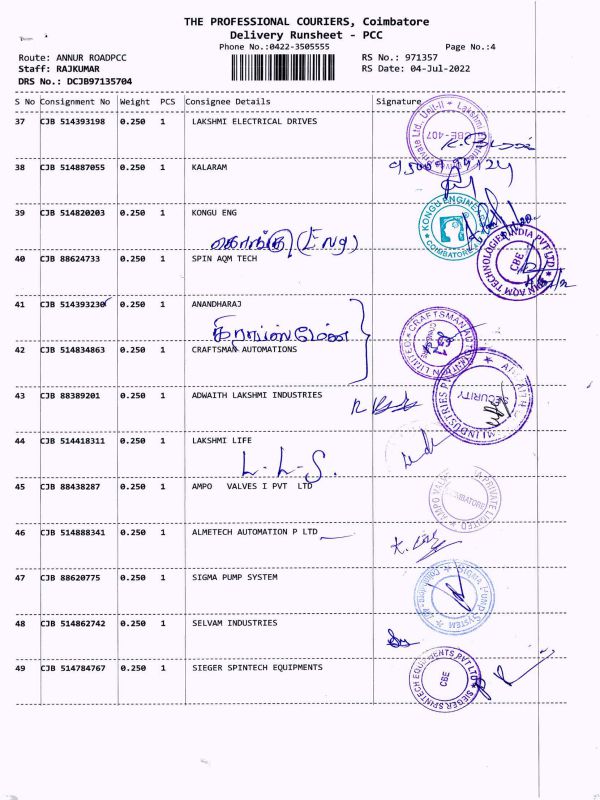 THE PROFESSIONAL COURIERS, Coimbatore
Delivery Runsheet - PCC
Phone No.:0422-3505555 Page No.:4
Route: ANNUR ROADPCC RS No.: 971357
Staff: RAJKUMAR RS Date: 04-Jul-2022
DRS No.: DCJB97135704
S No Consignment No Weight PCS Consignee Details Signature
37 CJB 514393198 0.250 1 LAKSHMI ELECTRICAL DRIVES
CBE-407
38 CJB 514887055 0.250 1 KALARAM
39 CJB 514820203 0.250 1 KONGU ENG
கொங்கு (Eng)
40 CJB 88624733 0.250 1 SPIN AQM TECH
CBE
41 CJB 514393230 0.250 1 ANANDHARAJ
42 CJB 514834863 0.250 1 CRAFTSMAN AUTOMATIONS
43 CJB 88389201 0.250 1 ADWAITH LAKSHMI INDUSTRIES
SECURITY
44 CJB 514418311 0.250 1 LAKSHMI LIFE
L.L.S.
45 CJB 88438287 0.250 1 AMPO VALVES I PVT LTD
46 CJB 514888341 0.250 1 ALMETECH AUTOMATION P LTD
47 CJB 88620775 0.250 1 SIGMA PUMP SYSTEM
48 CJB 514862742 0.250 1 SELVAM INDUSTRIES
49 CJB 514784767 0.250 1 SIEGER SPINTECH EQUIPMENTS
SIEGER SPINTECH EQUIPMENTS PVT LTD
CBE